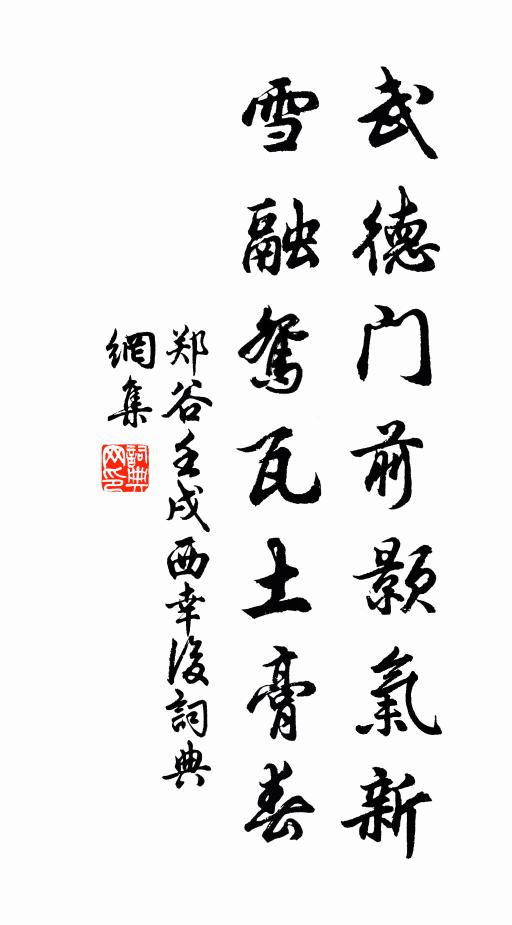 武德门前颢氣新
雪融鴛瓦土膏春
郑谷壬戌西幸後詞典
網集
詞典
网印